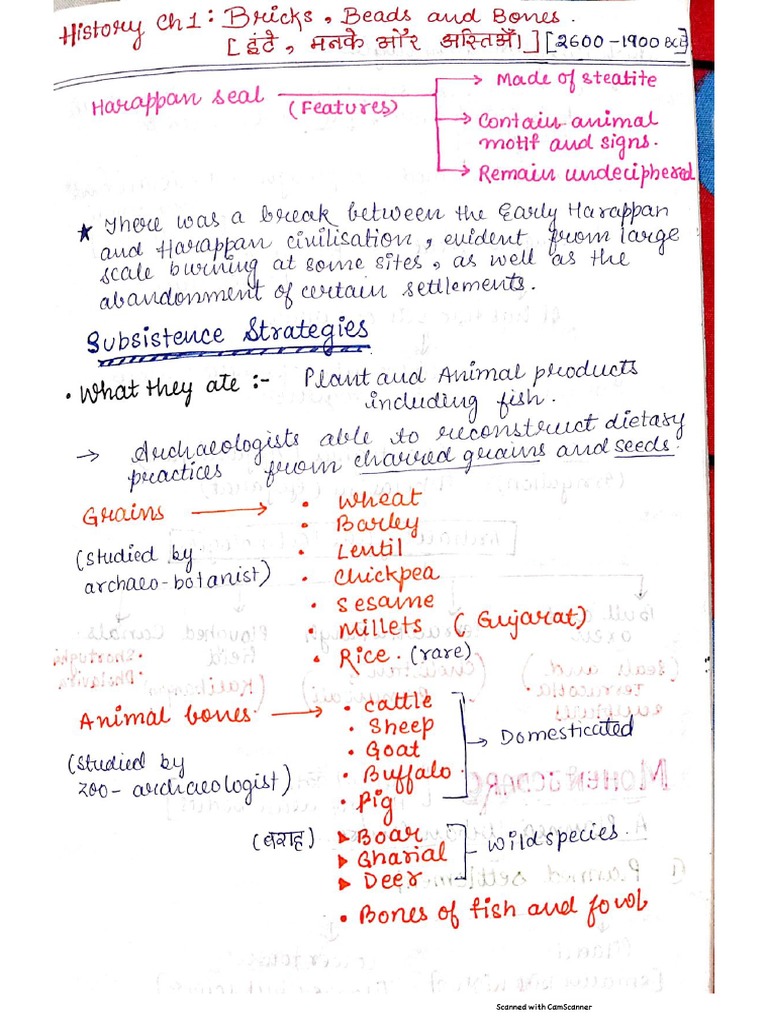 History Ch1: Bricks, Beads and Bones.
[ईंटे, मनके और अस्थियाँ] [2600-1900 BCE]
Harappan seal (Features)
Made of steatite
Contain animal
motif and signs.
Remain undeciphered
★ There was a break between the Early Harappan
and Harappan civilisation, evident from large
scale burning at some sites, as well as the
abandonment of certain settlements.
Subsistence Strategies
• What they ate :- Plant and Animal products
including fish.
→ Archaeologists able to reconstruct dietary
practices from charred grains and seeds.
Grains → • Wheat
• Barley
(Studied by • Lentil
archaeo-botanist) • Chickpea
• Sesame
• Millets (Gujarat)
• Rice. (rare)
Animal bones → • cattle
• Sheep
• Goat → Domesticated
(Studied by • Buffalo
zoo-archaeologist) • Pig
(वराह) ▶ Boar
▶ Gharial Wild species.
▶ Deer
• Bones of fish and fowl
Scanned with CamScanner